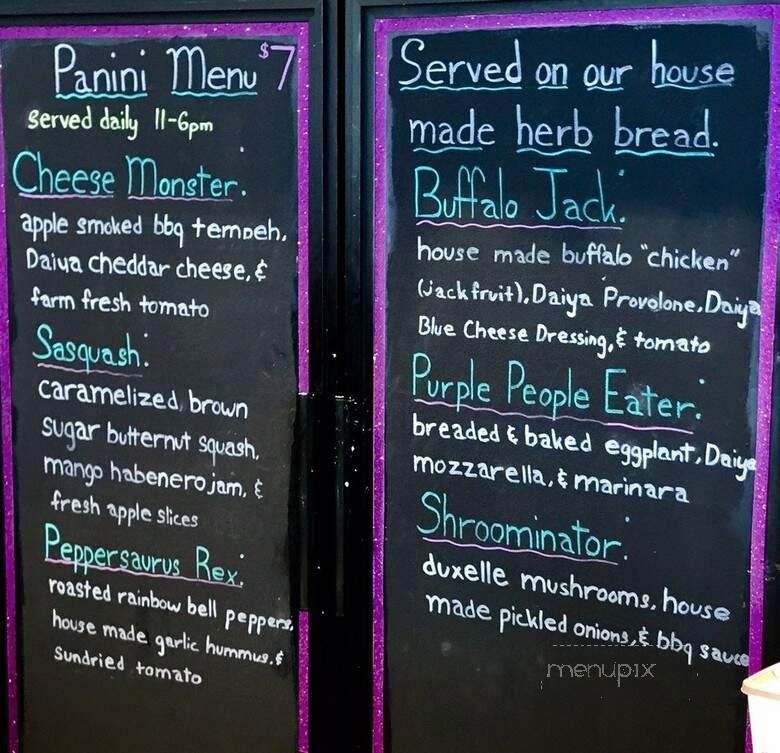 Panini Menu $7
served daily 11-6pm
Cheese Monster:
apple smoked bbq tempeh,
Daiya cheddar cheese, &
farm fresh tomato
Sasquash:
caramelized brown
sugar butternut squash,
mango habenero jam, &
fresh apple slices
Peppersaurus Rex:
roasted rainbow bell peppers,
house made garlic hummus, &
sundried tomato
Served on our house
made herb bread.
Buffalo Jack:
house made buffalo "chicken"
(jackfruit), Daiya Provolone, Daiya
Blue Cheese Dressing, & tomato
Purple People Eater:
breaded & baked eggplant, Daiya
mozzarella, & marinara
Shroominator:
duxelle mushrooms, house
made pickled onions, & bbq sauce
menupix